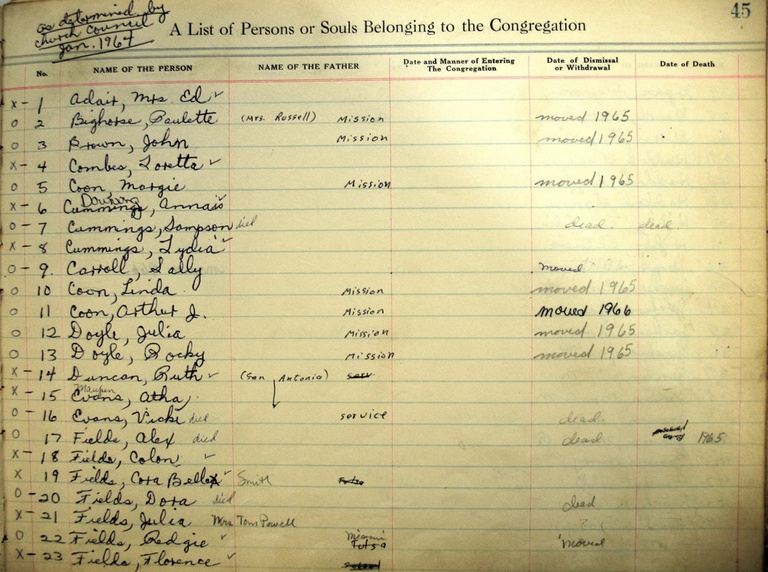 as determined by
church council
Jan. 1964
A List of Persons or Souls Belonging to the Congregation
45
No. NAME OF THE PERSON NAME OF THE FATHER Date and Manner of Entering The Congregation Date of Dismissal or Withdrawal Date of Death
X - 1 Adair, Mrs. Ed ✓
O 2 Bighorse, Paulette (Mrs. Russell) Mission moved 1965
O 3 Brown, John Mission moved 1965
X - 4 Combes, Loretta ✓
O 5 Coon, Margie Mission moved 1965
Downing
X - 6 Cummings, Annais ✓
O - 7 Cummings, Sampson died dead. dead.
X - 8 Cummings, Lydia ✓
O - 9. Carroll, Sally moved
O 10 Coon, Linda Mission moved 1965
O 11 Coon, Arthur J. Mission moved 1966
O 12 Doyle, Julia Mission moved 1965
O 13 Doyle, Rocky Mission moved 1965
X - 14 Duncan, Ruth ✓ (San Antonio) serv.
Maupin
X - 15 Evans, Atha
O - 16 Evans, Vicki died service dead.
O 17 Fields, Alex died dead 1965
X - 18 Fields, Colon ✓
X 19 Fields, Cora Belle ✓ Smith Tulsa
O - 20 Fields, Dora died dead
X - 21 Fields, Julia Mrs Tom Powell
Miami
O 22 Fields, Redgie ✓ Tulsa moved
X - 23 Fields, Florence ✓